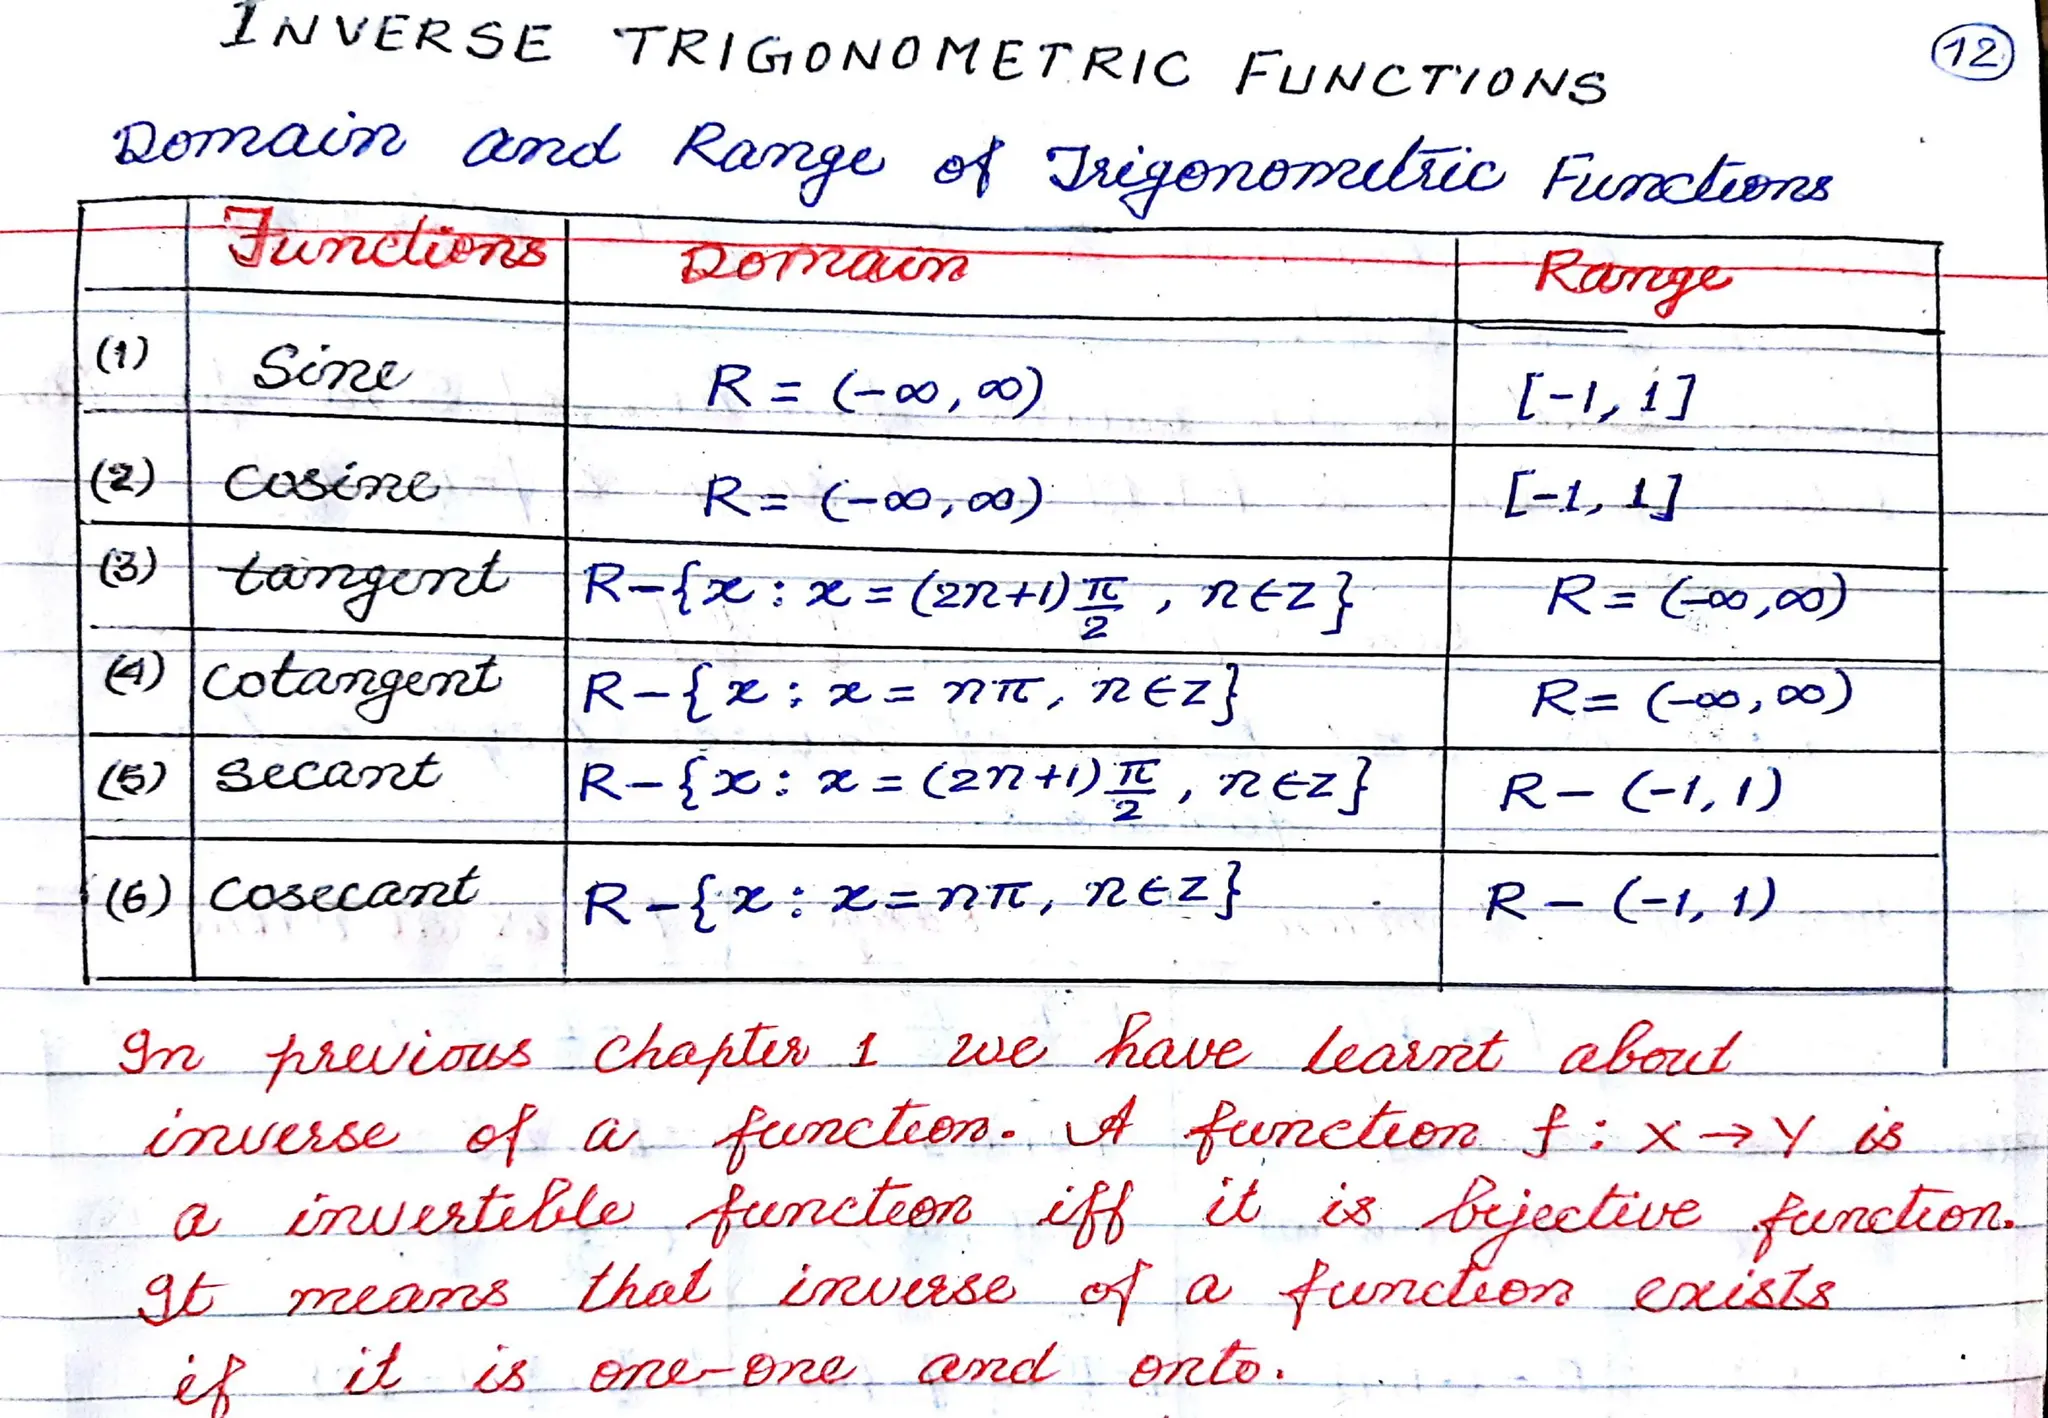 INVERSE TRIGONOMETRIC FUNCTIONS
12
Domain and Range of Trigonometric Functions
Functions Domain Range
(1) Sine R = (-∞, ∞) [-1, 1]
(2) Cosine R = (-∞, ∞) [-1, 1]
(3) tangent R-{x : x = (2n+1)π/2 , n∈Z} R = (-∞,∞)
(4) Cotangent R-{x : x = nπ, n∈Z} R= (-∞, ∞)
(5) Secant R-{x : x = (2n+1)π/2 , n∈Z} R- (-1, 1)
(6) Cosecant R-{x : x=nπ, n∈Z} R- (-1, 1)
In previous chapter 1 we have learnt about
inverse of a function. A function f : X→Y is
a invertible function iff it is bijective function.
It means that inverse of a function exists
if it is one-one and onto.